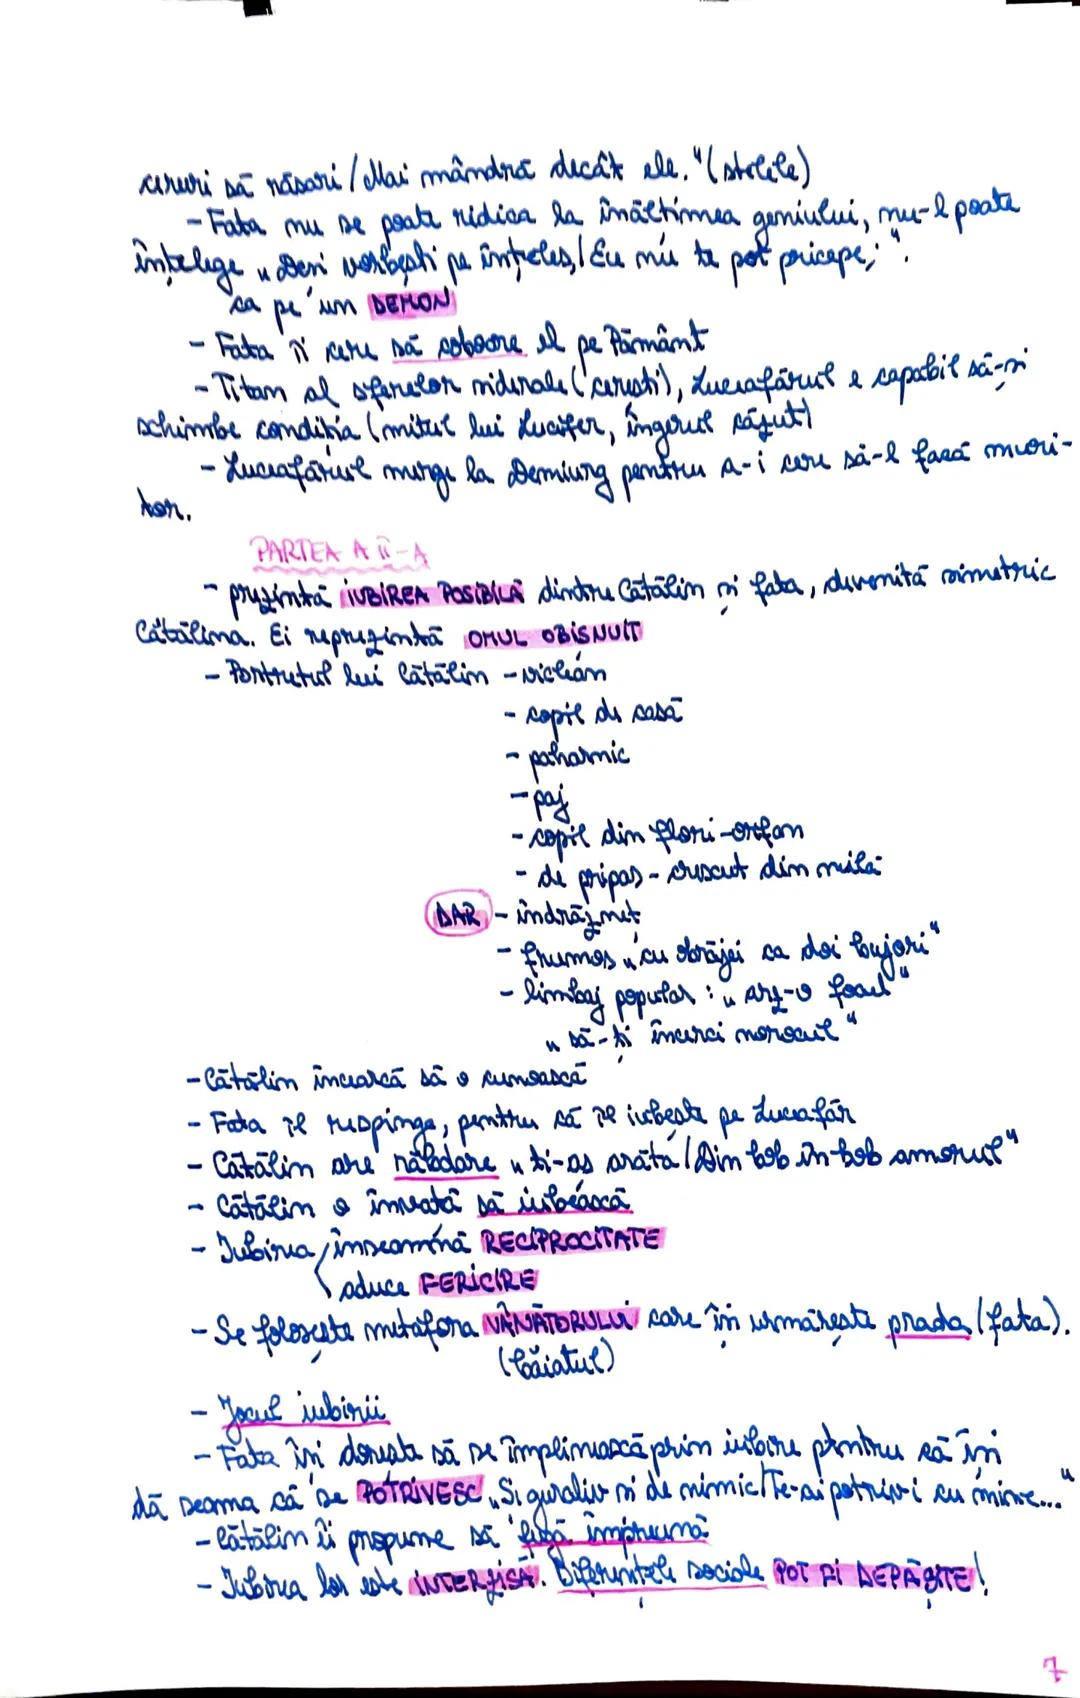 ceruri să răsari / Mai mândră decât ele." (stelele)
- Fata nu se poate ridica la înălțimea geniului, nu-l poate
înțelege „Deși vorbești pe înțeles, / Eu nu te pot pricepe;".
ca pe un DEMON
- Fata îi cere să coboare el pe Pământ
- Titan al sferelor siderale (cerești), Luceafărul e capabil să-și
schimbe condiția (mitul lui Lucifer, îngerul căzut)
- Luceafărul merge la Demiurg pentru a-i cere să-l facă muri-
tor.
PARTEA A II-A
- prezintă IUBIREA POSIBILĂ dintre Cătălin și fata, devenită simetric
Cătălina. Ei reprezintă OMUL OBISNUIT
- Portretul lui Cătălin - viclean
- copil de casă
- paharnic
- paj
- copil din flori - orfan
- de pripas - crescut din milă
DAR - îndrăzneț
- frumos „cu obrăjei ca doi bujori"
- limbaj popular: „arz-o focul"
„să-ți încerci norocul"
- Cătălin încearcă să o cunoască
- Fata îl respinge, pentru că îl iubește pe Luceafăr
- Cătălin are răbdare „ți-aș arăta / Din bob în bob amorul"
- Cătălin o învață să iubească
- Iubirea înseamnă RECIPROCITATE
aduce FERICIRE
- Se folosește metafora VÂNĂTORULUI care își urmărește prada (fata).
(băiatul)
- Jocul iubirii
- Fata își dorește să se împlinească prin iubire pentru că își
dă seama că se POTRIVESC „Și guraliv și de nimic / Te-ai potrivi cu mine..."
- Cătălin îi propune să fugă împreună
- Iubirea lor este INTERZISĂ. Diferențele sociale POT FI DEPĂȘITE!
7